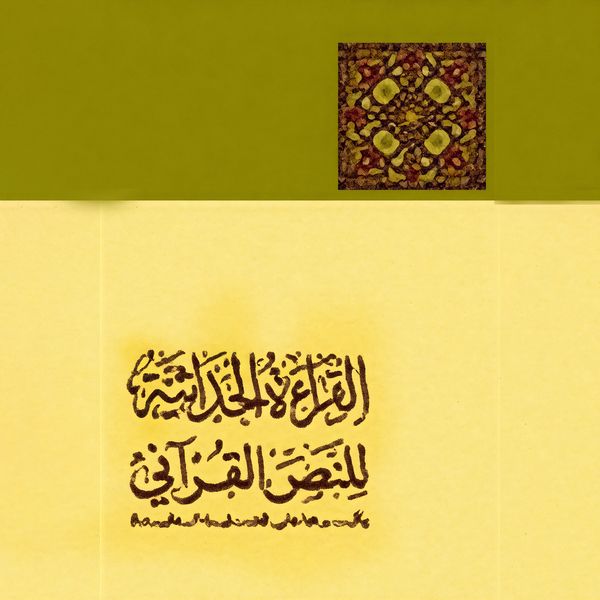 القراءة الحداثية
للنص القرآني